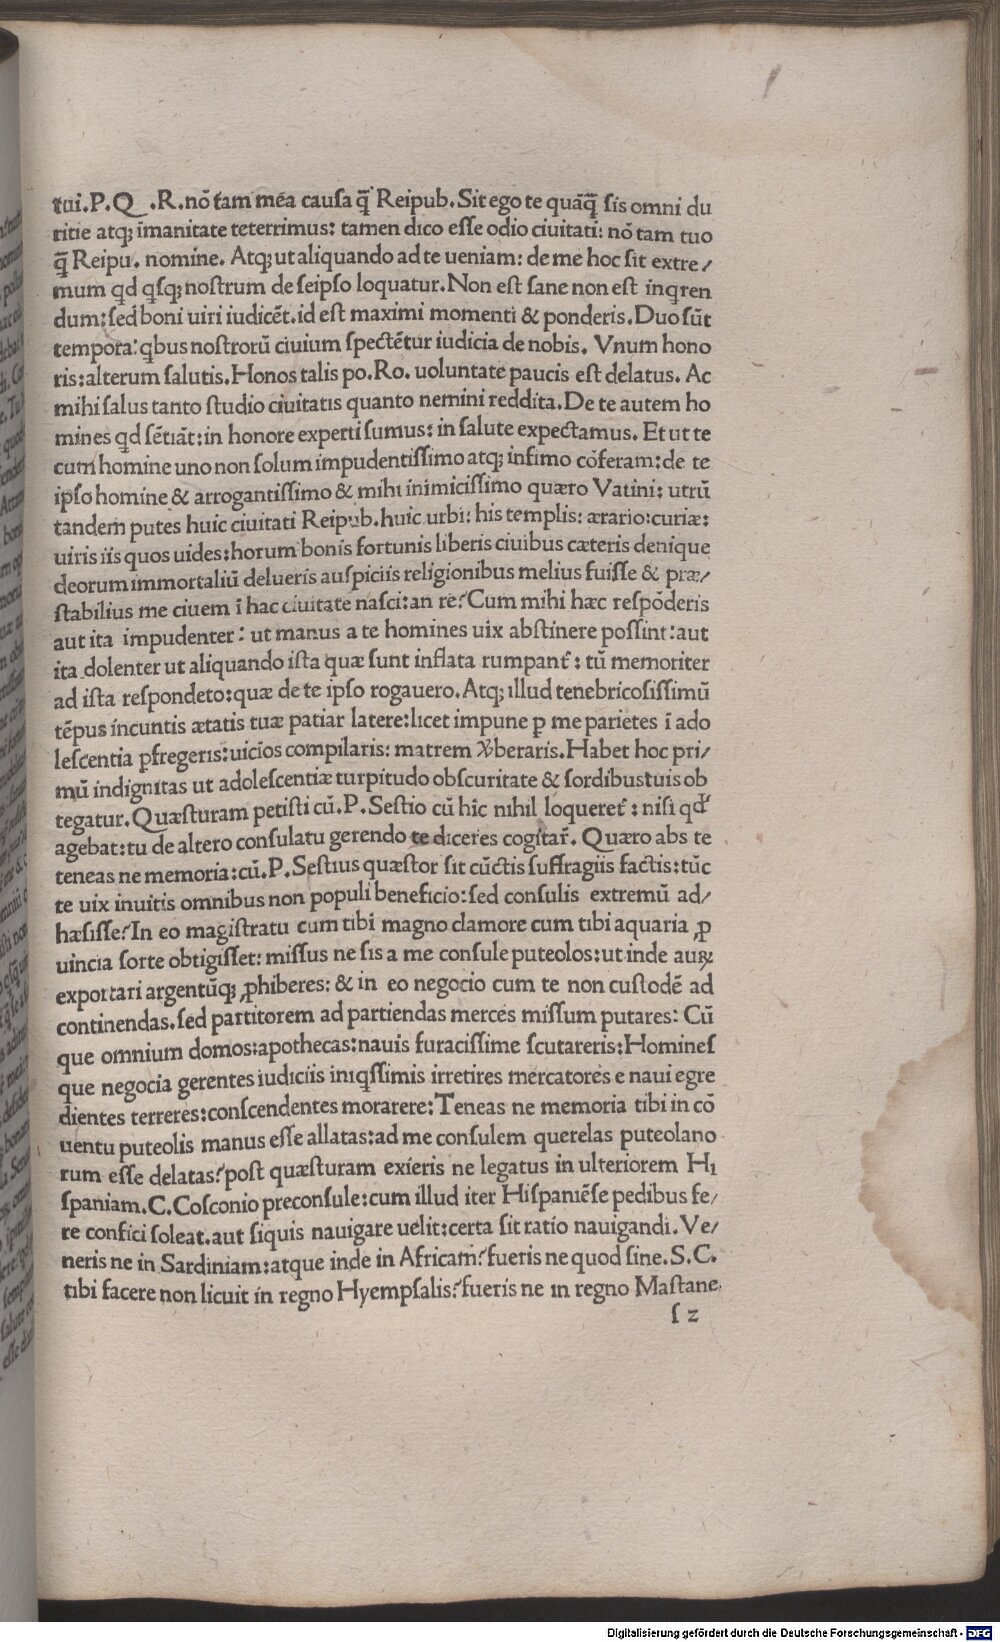 tui.P.Q .R.nō tam mea causa q̄ Reipub.Sit ego te quāq̄ sis omni du
ritie atq; īmanitate teterrimus: tamen dico esse odio ciuitati: nō tam tuo
q̄ Reipu. nomine. Atq; ut aliquando ad te ueniam: de me hoc sit extre/
mum qd qsq; nostrum de seipso loquatur. Non est sane non est inqren
dum: sed boni uiri iudicēt. id est maximi momenti & ponderis. Duo sūt
tempora: qbus nostrorū ciuium spectētur iudicia de nobis. Vnum hono
ris: alterum salutis. Honos talis po. Ro. uoluntate paucis est delatus. Ac
mihi salus tanto studio ciuitatis quanto nemini reddita. De te autem ho
mines qd sētiāt: in honore experti sumus: in salute expectamus. Et ut te
cum homine uno non solum impudentissimo atq; infimo cōferam: de te
ipso homine & arrogantissimo & mihi inimicissimo quæro Vatini: utrū
tandem putes huic ciuitati Reipub. huic urbi: his templis: ærario: curiæ:
uiris iis quos uides: horum bonis fortunis liberis ciuibus cæteris denique
deorum immortaliū delueris auspiciis religionibus melius fuisse & præ/
stabilius me ciuem ī hac ciuitate nasci: an re? Cum mihi hæc respōderis
aut ita impudenter: ut manus a te homines uix abstinere possint: aut
ita dolenter ut aliquando ista quæ sunt inflata rumpant᷑: tū memoriter
ad ista respondeto: quæ de te ipso rogauero. Atq; illud tenebricosissimū
tēpus incuntis ætatis tuæ patiar latere: licet impune ꝑ me parietes ī ado
lescentia pfregeris: uicios compilaris: matrem v̓beraris. Habet hoc pri/
mū indignitas ut adolescentiæ turpitudo obscuritate & sordibus tuis ob
tegatur. Quæsturam petisti cū. P. Sestio cū hic nihil loqueret᷑: nisi qd̓
agebat: tu de altero consulatu gerendo te diceres cogitar̄. Quæro abs te
teneas ne memoria: cū. P. Sestius quæstor sit cūctis suffragiis factis: tūc
te uix inuitis omnibus non populi beneficio: sed consulis extremū ad/
hæsisse? In eo magistratu cum tibi magno clamore cum tibi aquaria ꝓ
uincia sorte obtigisset: missus ne sis a me consule puteolos: ut inde auꝝ
exportari argentūq; ꝓhiberes: & in eo negocio cum te non custodē ad
continendas. sed partitorem ad partiendas merces missum putares: Cū
que omnium domos: apothecas: nauis furacissime scutareris: Homines
que negocia gerentes iudiciis iniqssimis irretires mercatores e naui egre
dientes terreres: conscendentes morarere: Teneas ne memoria tibi in cō
uentu puteolis manus esse allatas: ad me consulem querelas puteolano
rum esse delatas? post quæsturam exieris ne legatus in ulteriorem Hi
spaniam. C. Cosconio preconsule: cum illud iter Hispaniēse pedibus fe/
re confici soleat. aut siquis nauigare uelit: certa sit ratio nauigandi. Ve/
neris ne in Sardiniam: atque inde in Africam? fueris ne quod sine. S. C.
tibi facere non licuit in regno Hyempsalis? fueris ne in regno Mastane
s 2
Digitalisierung gefördert durch die Deutsche Forschungsgemeinschaft - DFG